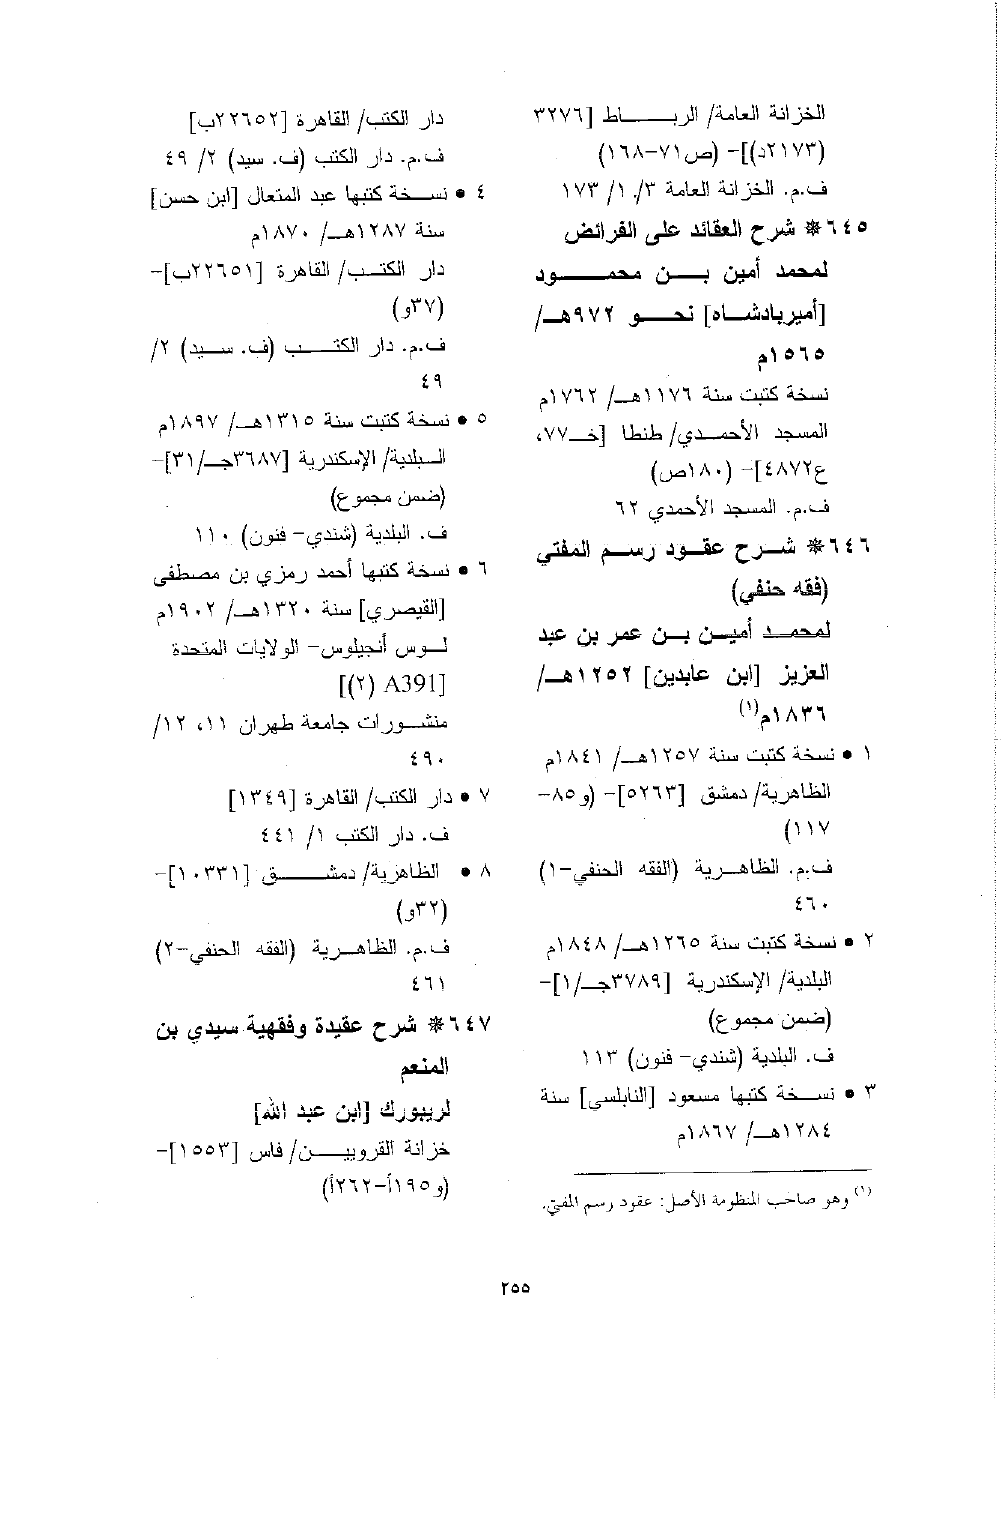 الخزانة العامة/ الرباط [٣٢٧٦
(٢١٧٣د)]- (ص٧١-١٦٨)
ف.م. الخزانة العامة ٣/. ١/ ١٧٣
٦٤٥* شرح العقائد على الفرائض
لمحمد أمين بن محمود
[أميربادشاه] نحو ٩٧٢هـ/
١٥٦٥م
نسخة كتبت سنة ١١٧٦هـ/ ١٧٦٢م
المسجد الأحمدي/ طنطا [خـ٧٧،
ع٤٨٧٢]- (١٨٠ص)
ف.م. المسجد الأحمدي ٦٢
٦٤٦* شرح عقود رسم المفتي
(فقه حنفي)
لمحمد أمين بن عمر بن عبد
العزيز [ابن عابدين] ١٢٥٢هـ/
١٨٣٦م(١)
١ • نسخة كتبت سنة ١٢٥٧هـ/ ١٨٤١م
الظاهرية/ دمشق [٥٢٦٣]- (و٨٥-
١١٧)
ف.م. الظاهرية (الفقه الحنفي-١)
٤٦٠
٢ • نسخة كتبت سنة ١٢٦٥هـ/ ١٨٤٨م
البلدية/ الإسكندرية [٣٧٨٩جـ/١]-
(ضمن مجموع)
ف. البلدية (شندي- فنون) ١١٣
٣ • نسخة كتبها مسعود [النابلسي] سنة
١٢٨٤هـ/ ١٨٦٧م
(١) وهو صاحب المنظومة الأصل: عقود رسم المفتي.
دار الكتب/ القاهرة [٢٢٦٥٢ب]
ف.م. دار الكتب (ف. سيد) ٢/ ٤٩
٤ • نسخة كتبها عبد المتعال [ابن حسن]
سنة ١٢٨٧هـ/ ١٨٧٠م
دار الكتب/ القاهرة [٢٢٦٥١ب]-
(٣٧و)
ف.م. دار الكتب (ف. سيد) ٢/
٤٩
٥ • نسخة كتبت سنة ١٣١٥هـ/ ١٨٩٧م
البلدية/ الإسكندرية [٣٦٨٧جـ/٣١]-
(ضمن مجموع)
ف. البلدية (شندي- فنون) ١١٠
٦ • نسخة كتبها أحمد رمزي بن مصطفى
[القيصري] سنة ١٣٢٠هـ/ ١٩٠٢م
لوس أنجيلوس- الولايات المتحدة
[A391 (٢)]
منشورات جامعة طهران ١١، ١٢/
٤٩٠
٧ • دار الكتب/ القاهرة [١٣٤٩]
ف. دار الكتب ١/ ٤٤١
٨ • الظاهرية/ دمشق [١٠٣٣١]-
(٣٢و)
ف.م. الظاهرية (الفقه الحنفي-٢)
٤٦١
٦٤٧* شرح عقيدة وفقهية سيدي بن
المنعم
لريبورك [ابن عبد الله]
خزانة القرويين/ فاس [١٥٥٣]-
(و١٩٥أ-٢٦٢أ)
٢٥٥